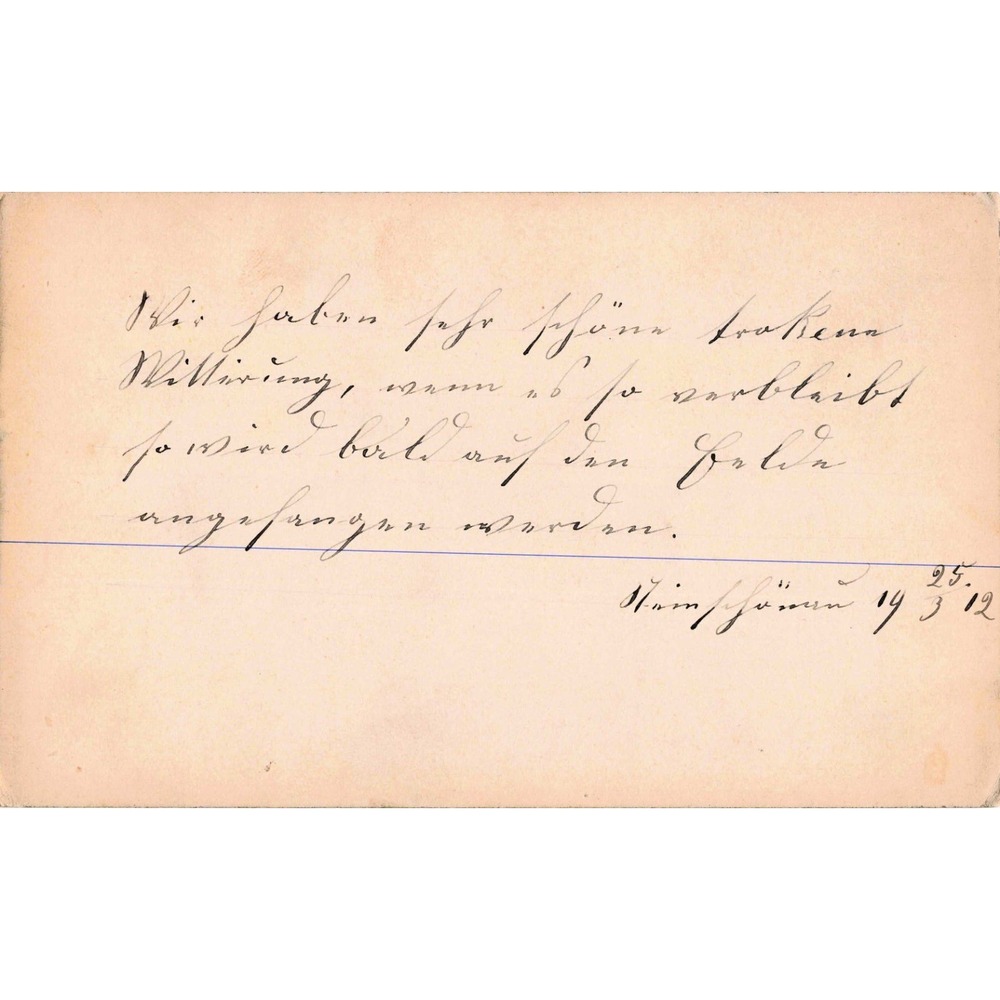 Wir haben sehr schöne trokene
Witterung, wenn es so verbleibt
so wird bald auf den Felde
angefangen werden.
Steinschönau 19 25./3 12